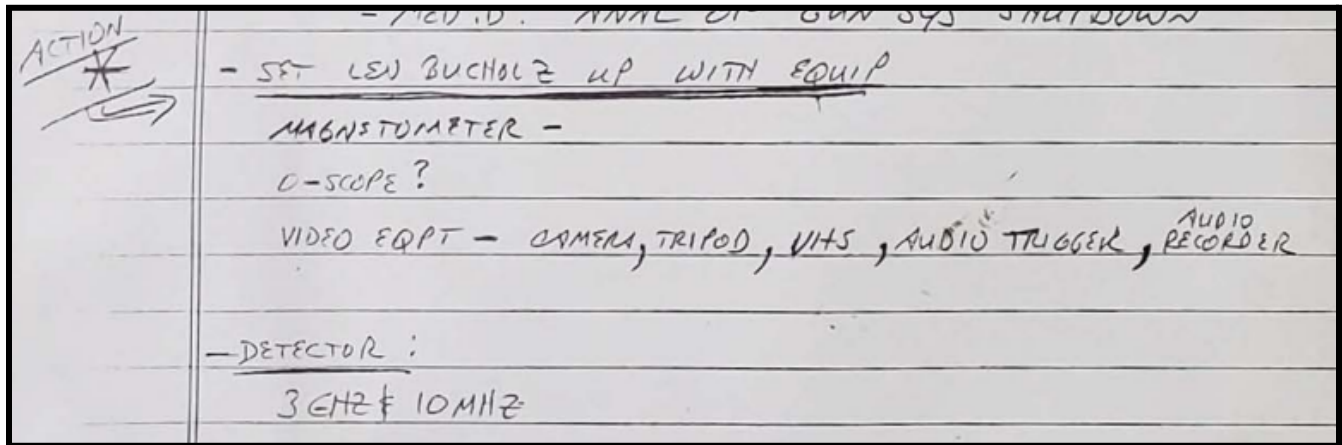 - MED.D. ANAL OF GUN SYS SHUTDOWN
ACTION
- SET LEN BUCHOLZ UP WITH EQUIP
MAGNETOMETER -
O-SCOPE?
VIDEO EQPT - CAMERA, TRIPOD, VHS, AUDIO TRIGGER, AUDIO RECORDER
- DETECTOR :
3 GHZ & 10 MHZ